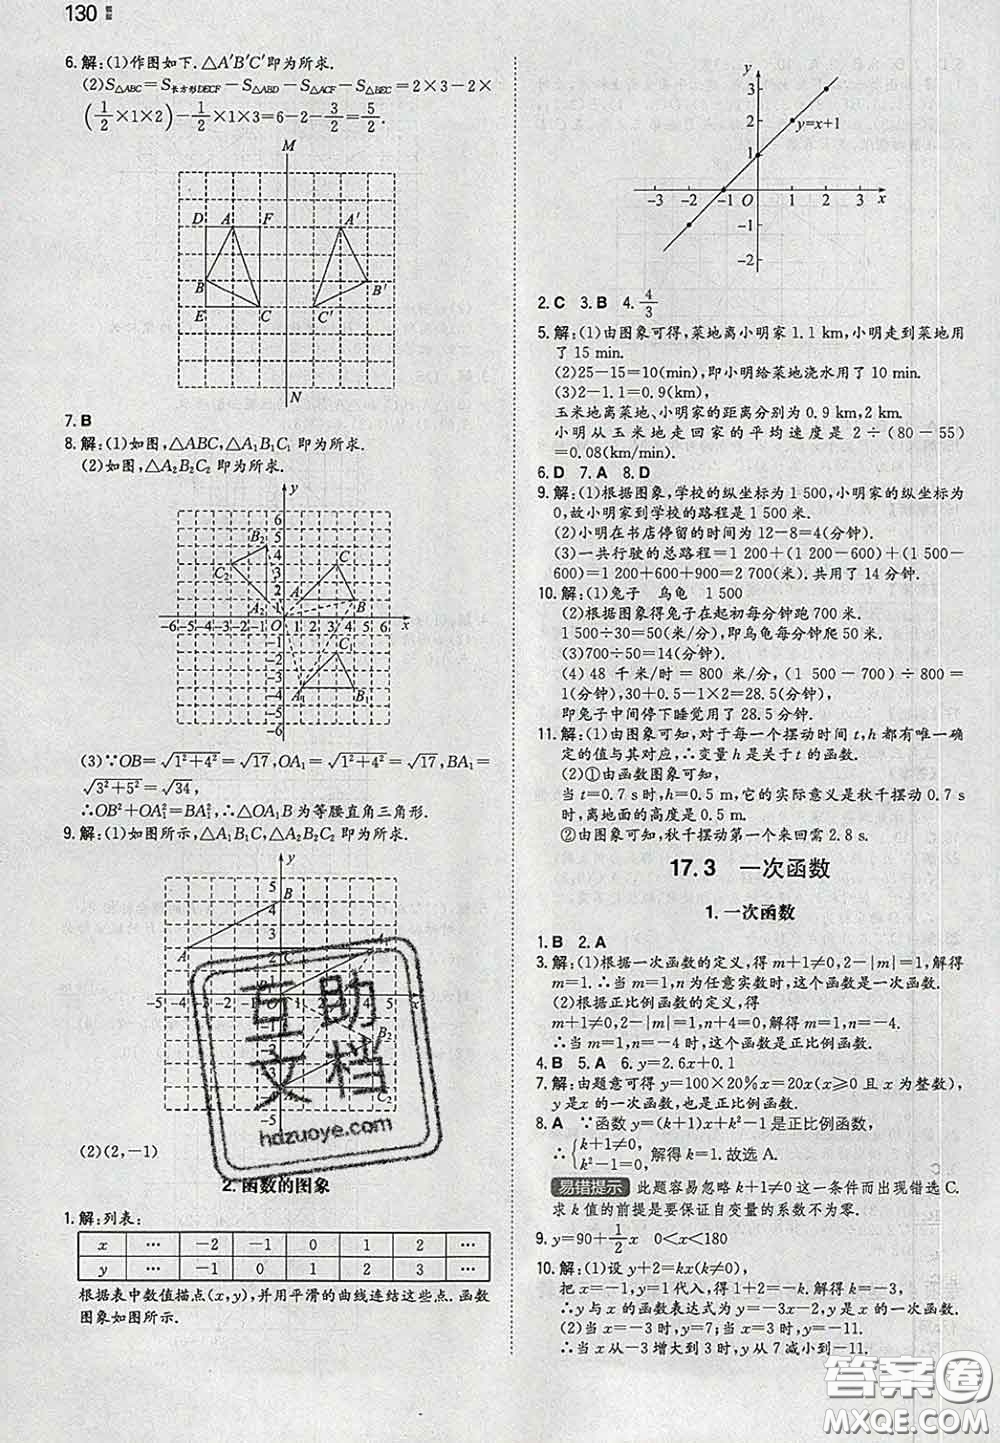 130
6.解:(1)作图如下.△A′B′C′即为所求.
(2)S△ABC=S长方形DECF-S△ABD-S△ACF-S△BEC=2×3-2×
(1/2×1×2)-1/2×1×3=6-2-3/2=5/2.
M
D A F A′
B B′
E C C′
N
7.B
8.解:(1)如图,△ABC,△A₁B₁C₁ 即为所求.
(2)如图,△A₂B₂C₂ 即为所求.
y
6
5
4
3
2
1
B₂ C₂ A₂ C A B
-6 -5 -4 -3 -2 -1 O 1 2 3 4 5 6 x
-1
-2
-3
-4
-5
-6
C₁ A₁ B₁
(3)∵OB=√1²+4²=√17,OA₁=√1²+4²=√17,BA₁=
√3²+5²=√34,
∴OB²+OA₁²=BA₁²,∴△OA₁B为等腰直角三角形.
9.解:(1)如图所示,△A₁B₁C,△A₂B₂C₂ 即为所求.
y
5
4
3
2
B
A C A₁
-5 -4 -3 1 2 3 4 5 x
B₂
C₂
-5
互助
文档
hdzuoye.com
(2)(2,-1)
2.函数的图象
1.解:列表:
x … -2 -1 0 1 2 …
y … -1 0 1 2 3 …
根据表中数值描点(x,y),并用平滑的曲线连结这些点.函数
图象如图所示.
y
3
2
1
y=x+1
-3 -2 -1 O 1 2 3 x
-1
-2
2.C 3.B 4.4/3
5.解:(1)由图象可得,菜地离小明家1.1 km,小明走到菜地用
了15 min.
(2)25-15=10(min),即小明给菜地浇水用了10 min.
(3)2-1.1=0.9(km),
玉米地离菜地、小明家的距离分别为0.9 km,2 km.
小明从玉米地走回家的平均速度是2÷(80-55)
=0.08(km/min).
6.D 7.A 8.D
9.解:(1)根据图象,学校的纵坐标为1 500,小明家的纵坐标为
0,故小明家到学校的路程是1 500米.
(2)小明在书店停留的时间为12-8=4(分钟).
(3)一共行驶的总路程=1 200+(1 200-600)+(1 500-
600)=1 200+600+900=2 700(米).共用了14分钟.
10.解:(1)兔子 乌龟 1 500
(2)根据图象得兔子在起初每分钟跑700米.
1 500÷30=50(米/分),即乌龟每分钟爬50米.
(3)700÷50=14(分钟).
(4)48 千米/时=800 米/分,(1 500-700)÷800=
1(分钟),30+0.5-1×2=28.5(分钟),
即兔子中间停下睡觉用了28.5分钟.
11.解:(1)由图象可知,对于每一个摆动时间t,h都有唯一确
定的值与其对应,∴变量h是关于t的函数.
(2)①由函数图象可知,
当t=0.7 s时,h=0.5 m,它的实际意义是秋千摆动0.7 s
时,离地面的高度是0.5 m.
②由图象可知,秋千摆动第一个来回需2.8 s.
17.3 一次函数
1.一次函数
1.B 2.A
3.解:(1)根据一次函数的定义,得m+1≠0,2-|m|=1,解得
m=1.∴当m=1,n为任意实数时,这个函数是一次函数.
(2)根据正比例函数的定义,得
m+1≠0,2-|m|=1,n+4=0,解得m=1,n=-4.
∴当m=1,n=-4时,这个函数是正比例函数.
4.B 5.A 6.y=2.6x+0.1
7.解:由题意可得y=100×20%x=20x(x≥0且x为整数),
故y是x的一次函数,也是正比例函数.
8.A ∵函数y=(k+1)x+k²-1是正比例函数,
∴{k+1≠0, k²-1=0, 解得k=1.故选A.
易错提示 此题容易忽略k+1≠0这一条件而出现错选C.
求k值的前提是要保证自变量的系数不为零.
9.y=90+1/2x 0<x<180
10.解:(1)设y+2=kx(k≠0),
把x=-1,y=1代入,得1+2=-k.解得k=-3.
∴y与x的函数表达式为y=-3x-2,y是x的一次函数.
(2)当x=-3时,y=7;当x=3时,y=-11.
∴当x从-3增大到3时,y从7减小到-11.
答案圈
MXQE.COM